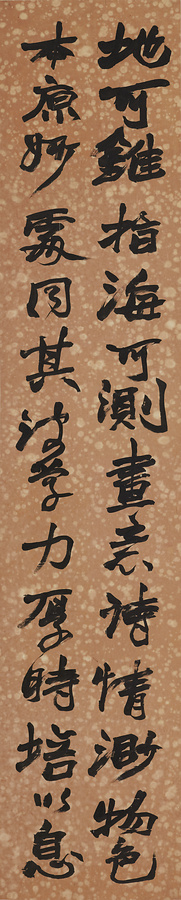 地可錐指海可測畫意詩情渺物色
本原妙處同其波学力厚時培以息